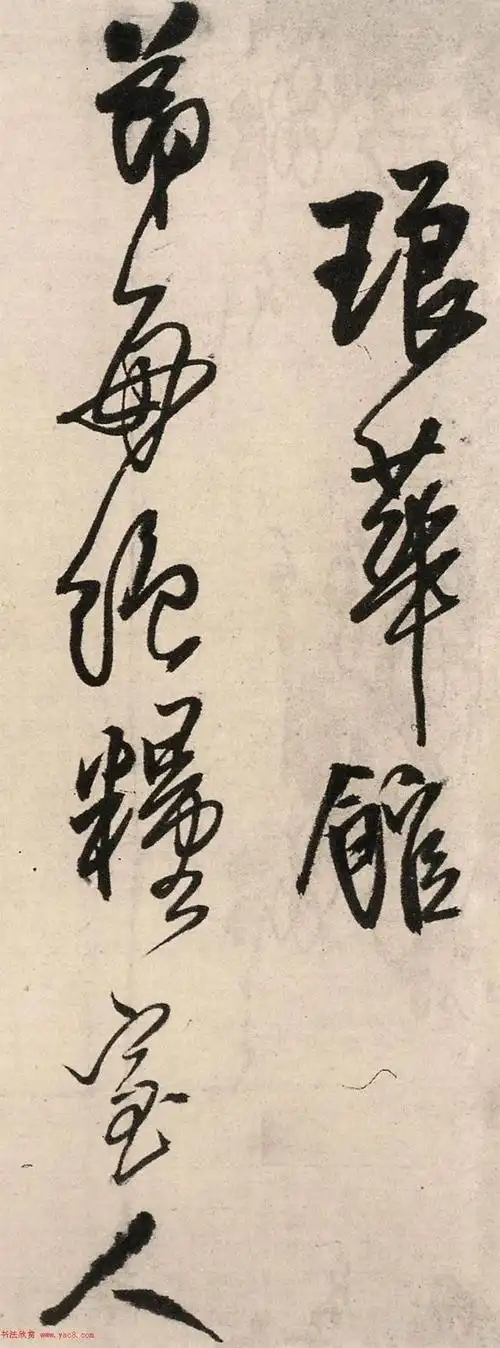 琅華館
每絕糧室人
书法欣赏 www.yac8.com